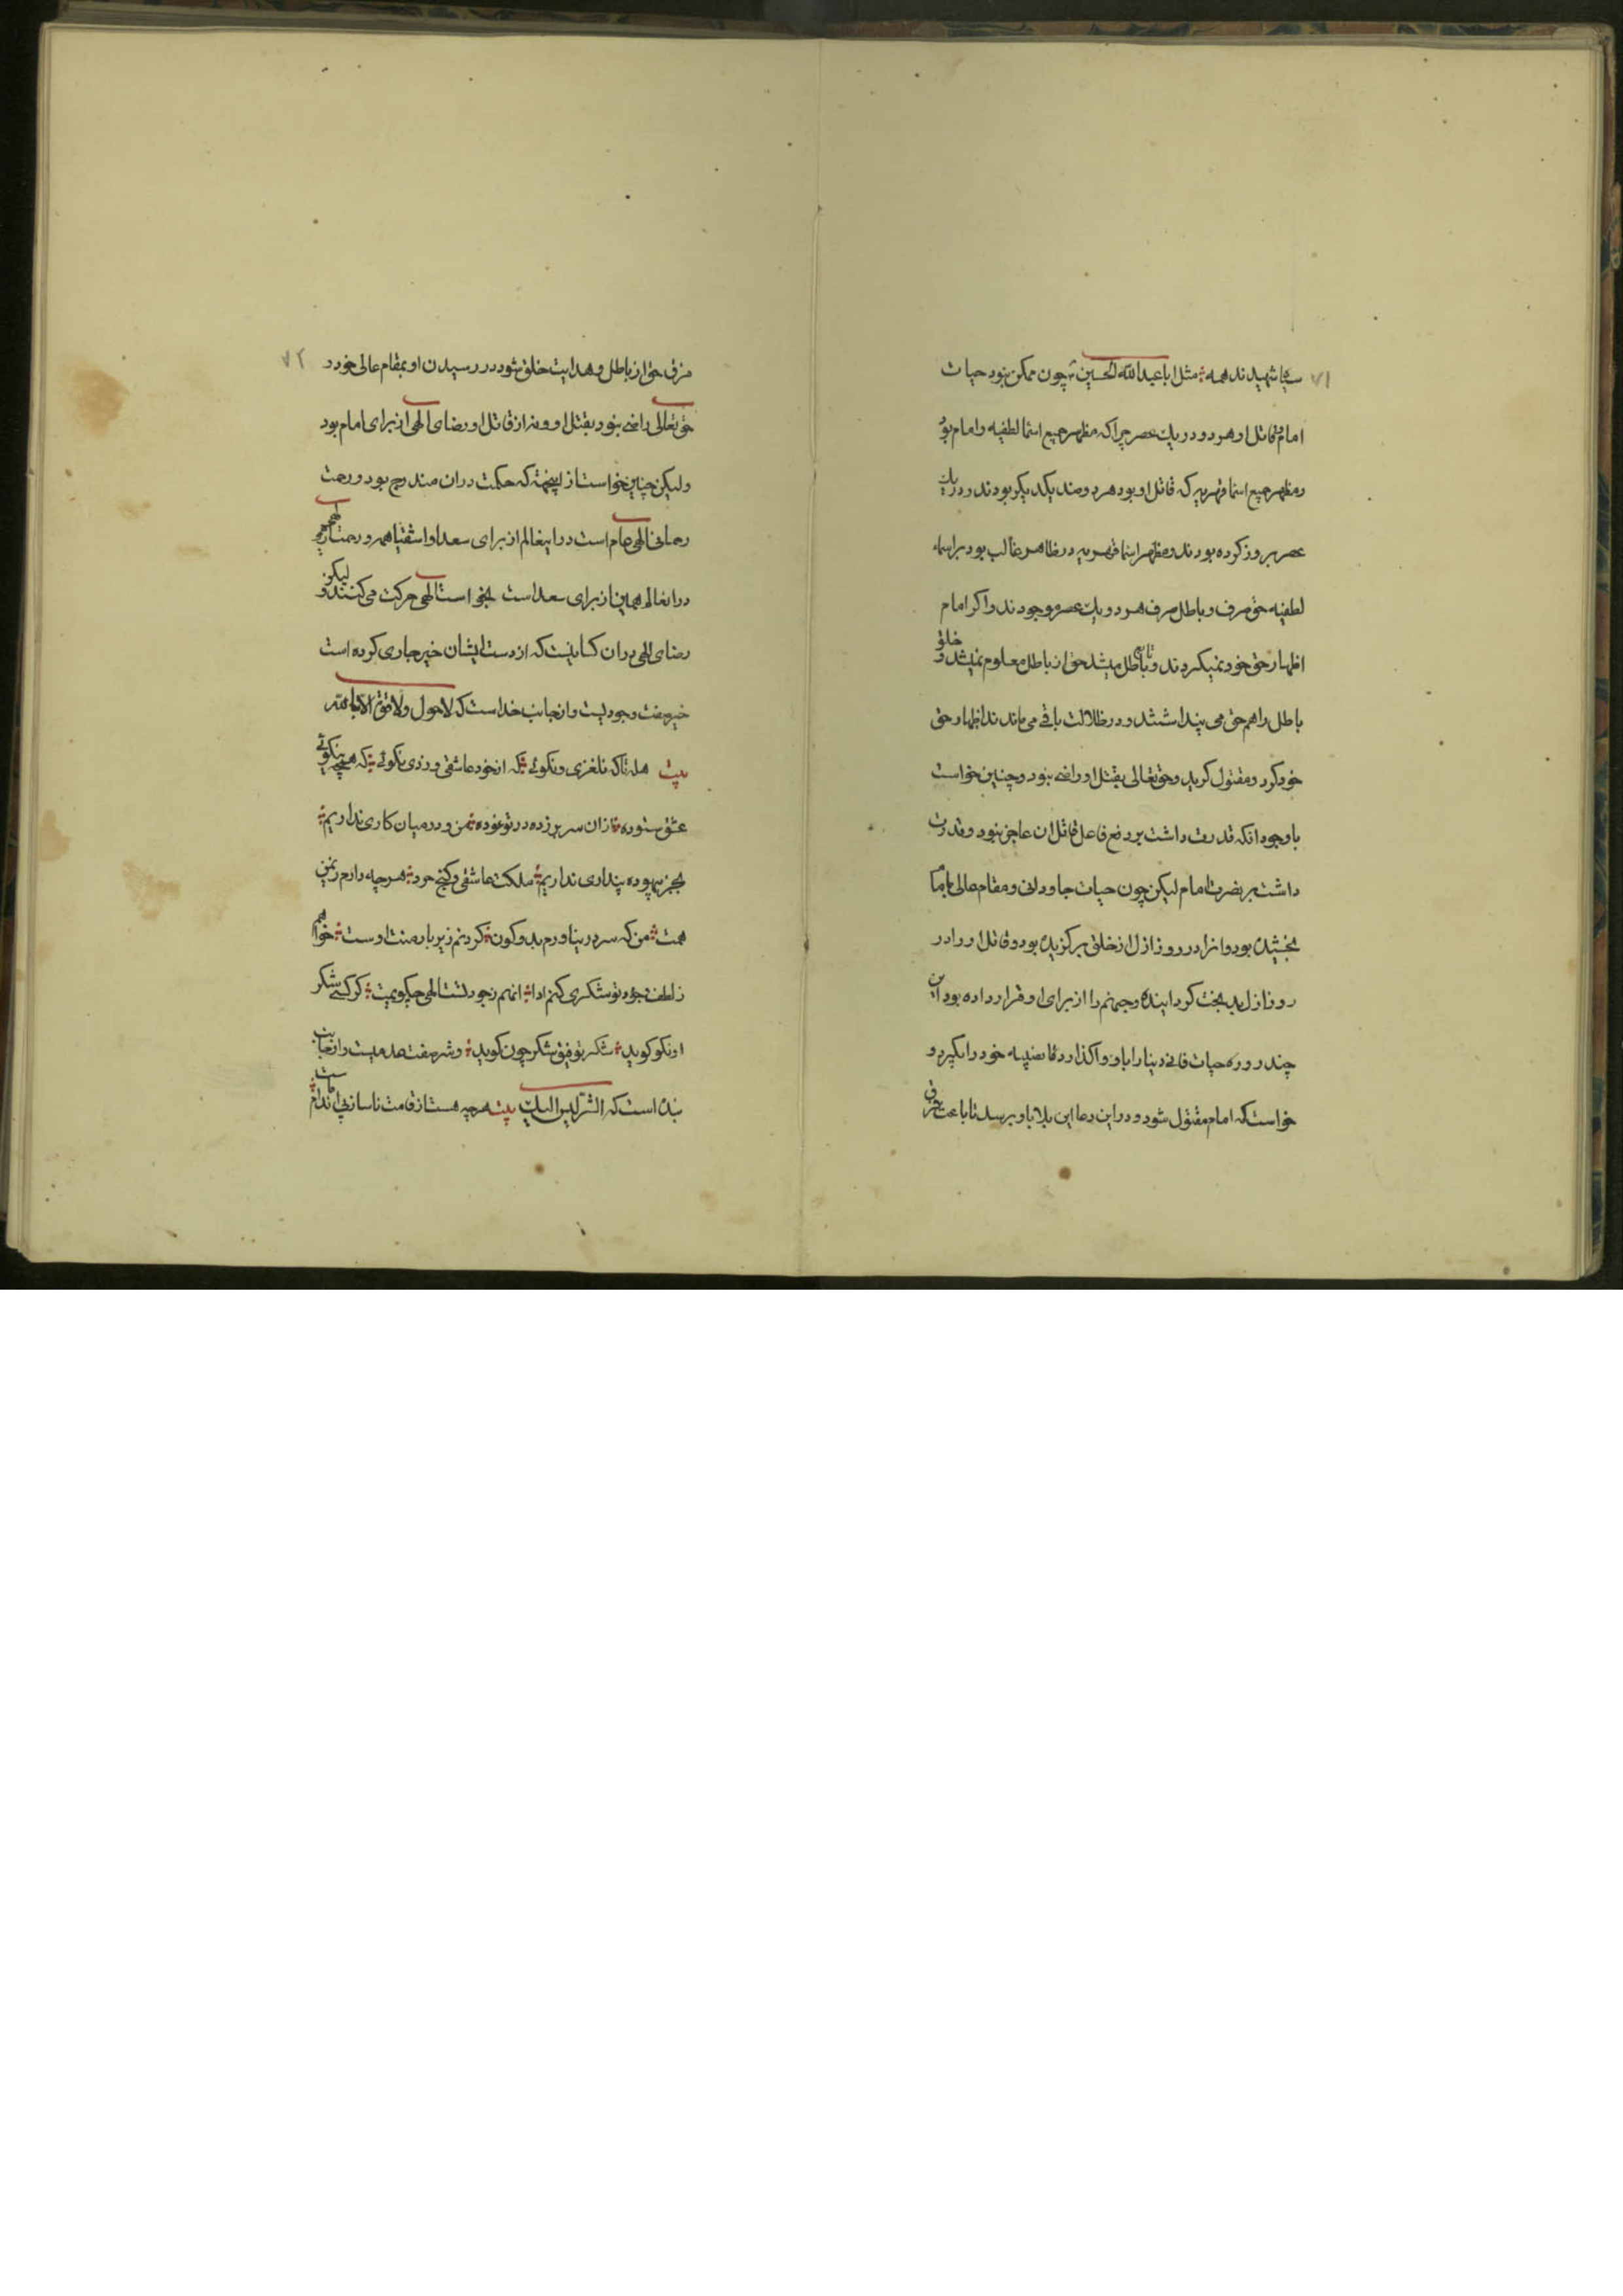 ۷۱
شهیدند همه مثل ابا عبدالله الحسین چون ممکن نبود حیات
امام و قاتل او هر دو در یک عصر چرا که مظهر جمیع اسما لطفیه و امام بود
و مظهر جمیع اسما قهریه که قاتل او بود هر دو ضد یکدیگر بودند و در یک
عصر بروز کرده بودند و مظهر اسما قهریه در ظاهر غالب بود بر اسماء
لطفیه حق صرف و باطل صرف هر دو یک عصر موجودند و اکر امام
اظهار حق خود نمیکردند و تابع باطل میشد حق از باطل معلوم نمیشد و خلق
باطل را هم حق می پنداشتند و در ظلالت باقی می ماندند اظهار حق
خود کرد و مقتول کردید و حق تعالی بقتل او راضی نبود و چنین خواست
با وجود انکه قدرت داشت بر دفع فاعل قاتل ان عاجز نبود و قدرت
داشت بر نصرت امام لیکن چون حیات جاودانی و مقام عالی بامام
بخشیده بود و انرا در روز ازل از خلق برکزیده بود و قاتل او را در
روز ازل بد بخت کردانیده و جهنم را از برای او قرار داده بود این
چند روزه حیات فانی دنیا را باو واکذارد تا نصیبه خود را بگیرد و
خواست که امام مقتول شود و در این دعا این بلا باو برسد تا باعث
۷۲
فرق حق از باطل و هدایت خلق شود در رسیدن او بمقام عالی خود و
حق تعالی راضی نبود بقتل او و نه از قاتل او و رضای الهی از برای امام بود
ولیکن چنین خواست از اینجهة که حکمت در ان مندرج بود و رحمت
رحمانی الهی عام است در اینعالم از برای سعدا و اشقیا همه و رحمت
در انعالم همین از برای سعد است بخواست الهی حرکت می کنند و لیکن
رضای الهی در ان کسانیست که از دست ایشان خیر جاری کرده است
خیر صفت وجودیست و از جانب خداست که لا حول ولا قوة الا بالله
بیت هله تا که نلغزی و نکوئی که از خود عاشقی ورزی نکوئی که همچه نیکوئی
عشق ستوده از ان سر بر زده در تو نموده من و در میان کاری نداریم
بجز بیهوده پنداری نداریم ملکت عاشقی و کنج هرچه دارم ز یمن
همت من که سر در نیاورم بدو کون کردنم زیر بار منت اوست خواهم
ز لطف و جود تو شکری کنم ادا انهم ز جود تست الهی چکویمت کر کسی شکر
او نکو کوید شکر توفیق شکر چون کوید و شر صفت عدمیست و از جانب
بنده است که الشر لیس الیک بیت هرچه هست از قامت ناساز بی اندام ماست